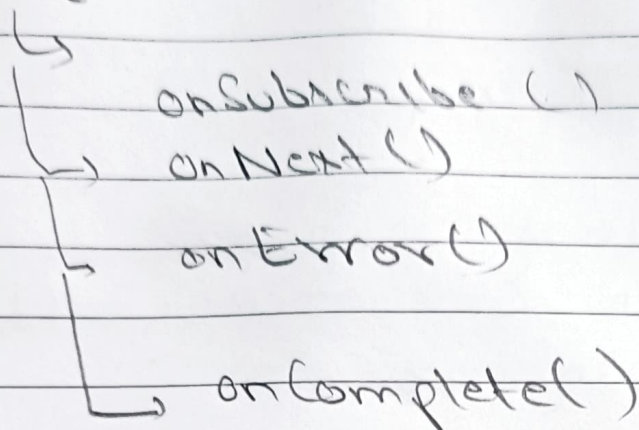 onSubscribe ()
onNext ()
onError ()
onComplete()